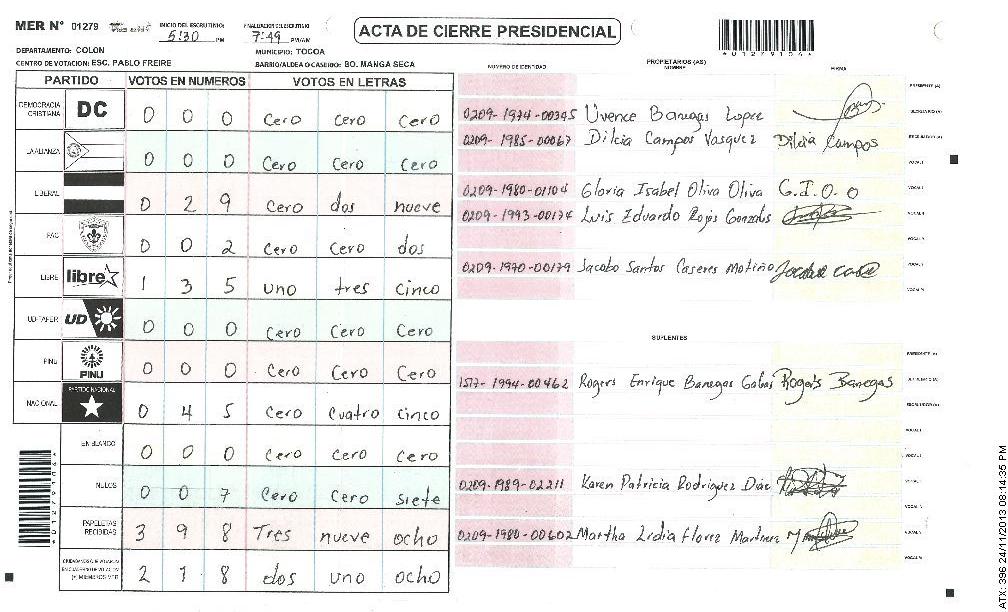 MER N° 01279
INICIO DEL ESCRUTINIO: 5:30 PM
FINALIZACION DEL ESCRUTINIO 7:49 PM/AM
ACTA DE CIERRE PRESIDENCIAL
*0127910A*
DEPARTAMENTO: COLON
MUNICIPIO: TOCOA
CENTRO DE VOTACION: ESC. PABLO FREIRE
BARRIO/ALDEA O CASERIO: BO. MANGA SECA
PARTIDO VOTOS EN NUMEROS VOTOS EN LETRAS
DEMOCRACIA CRISTIANA DC 0 0 0 Cero Cero Cero
LA ALIANZA 0 0 0 Cero Cero Cero
LIBERAL 0 2 9 Cero dos nueve
PAC 0 0 2 Cero Cero dos
LIBRE libre 1 3 5 uno tres cinco
UD-FAPER UD 0 0 0 Cero Cero Cero
PINU PINU 0 0 0 Cero Cero Cero
NACIONAL PARTIDO NACIONAL 0 4 5 Cero Cuatro cinco
EN BLANCO 0 0 0 Cero Cero Cero
NULOS 0 0 7 Cero Cero siete
PAPELETAS RECIBIDAS 3 9 8 Tres nueve ocho
CIUDADANOS QUE VOTARON EN CUADERNO DE VOTACION (+) MIEMBROS MER 2 1 8 dos uno ocho
NUMERO DE IDENTIDAD
PROPIETARIOS (AS)
NOMBRE
FIRMA
PRESIDENTE (A)
0209-1974-00345 Uvence Banegas Lopez
SECRETARIO (A)
0209-1985-00067 Dilcia Campos Vasquez Dilcia Campos
ESCRUTADOR (A)
VOCAL I
0209-1980-01104 Gloria Isabel Oliva Oliva G.I.O.O
0209-1993-00174 Luis Eduardo Rojas Gonzales
0209-1970-00179 Jacobo Santos Caseres Motiño
SUPLENTES
PRESIDENTE (A)
1517-1994-00462 Rogers Enrique Banegas Rogers Banegas
SECRETARIO (A)
ESCRUTADOR (A)
VOCAL I
0209-1989-02211 Karen Patricia Rodriguez Diaz
0209-1980-00602 Martha Lidia Florez Martinez
ATX: 396 24/11/2013 08:14:35 PM